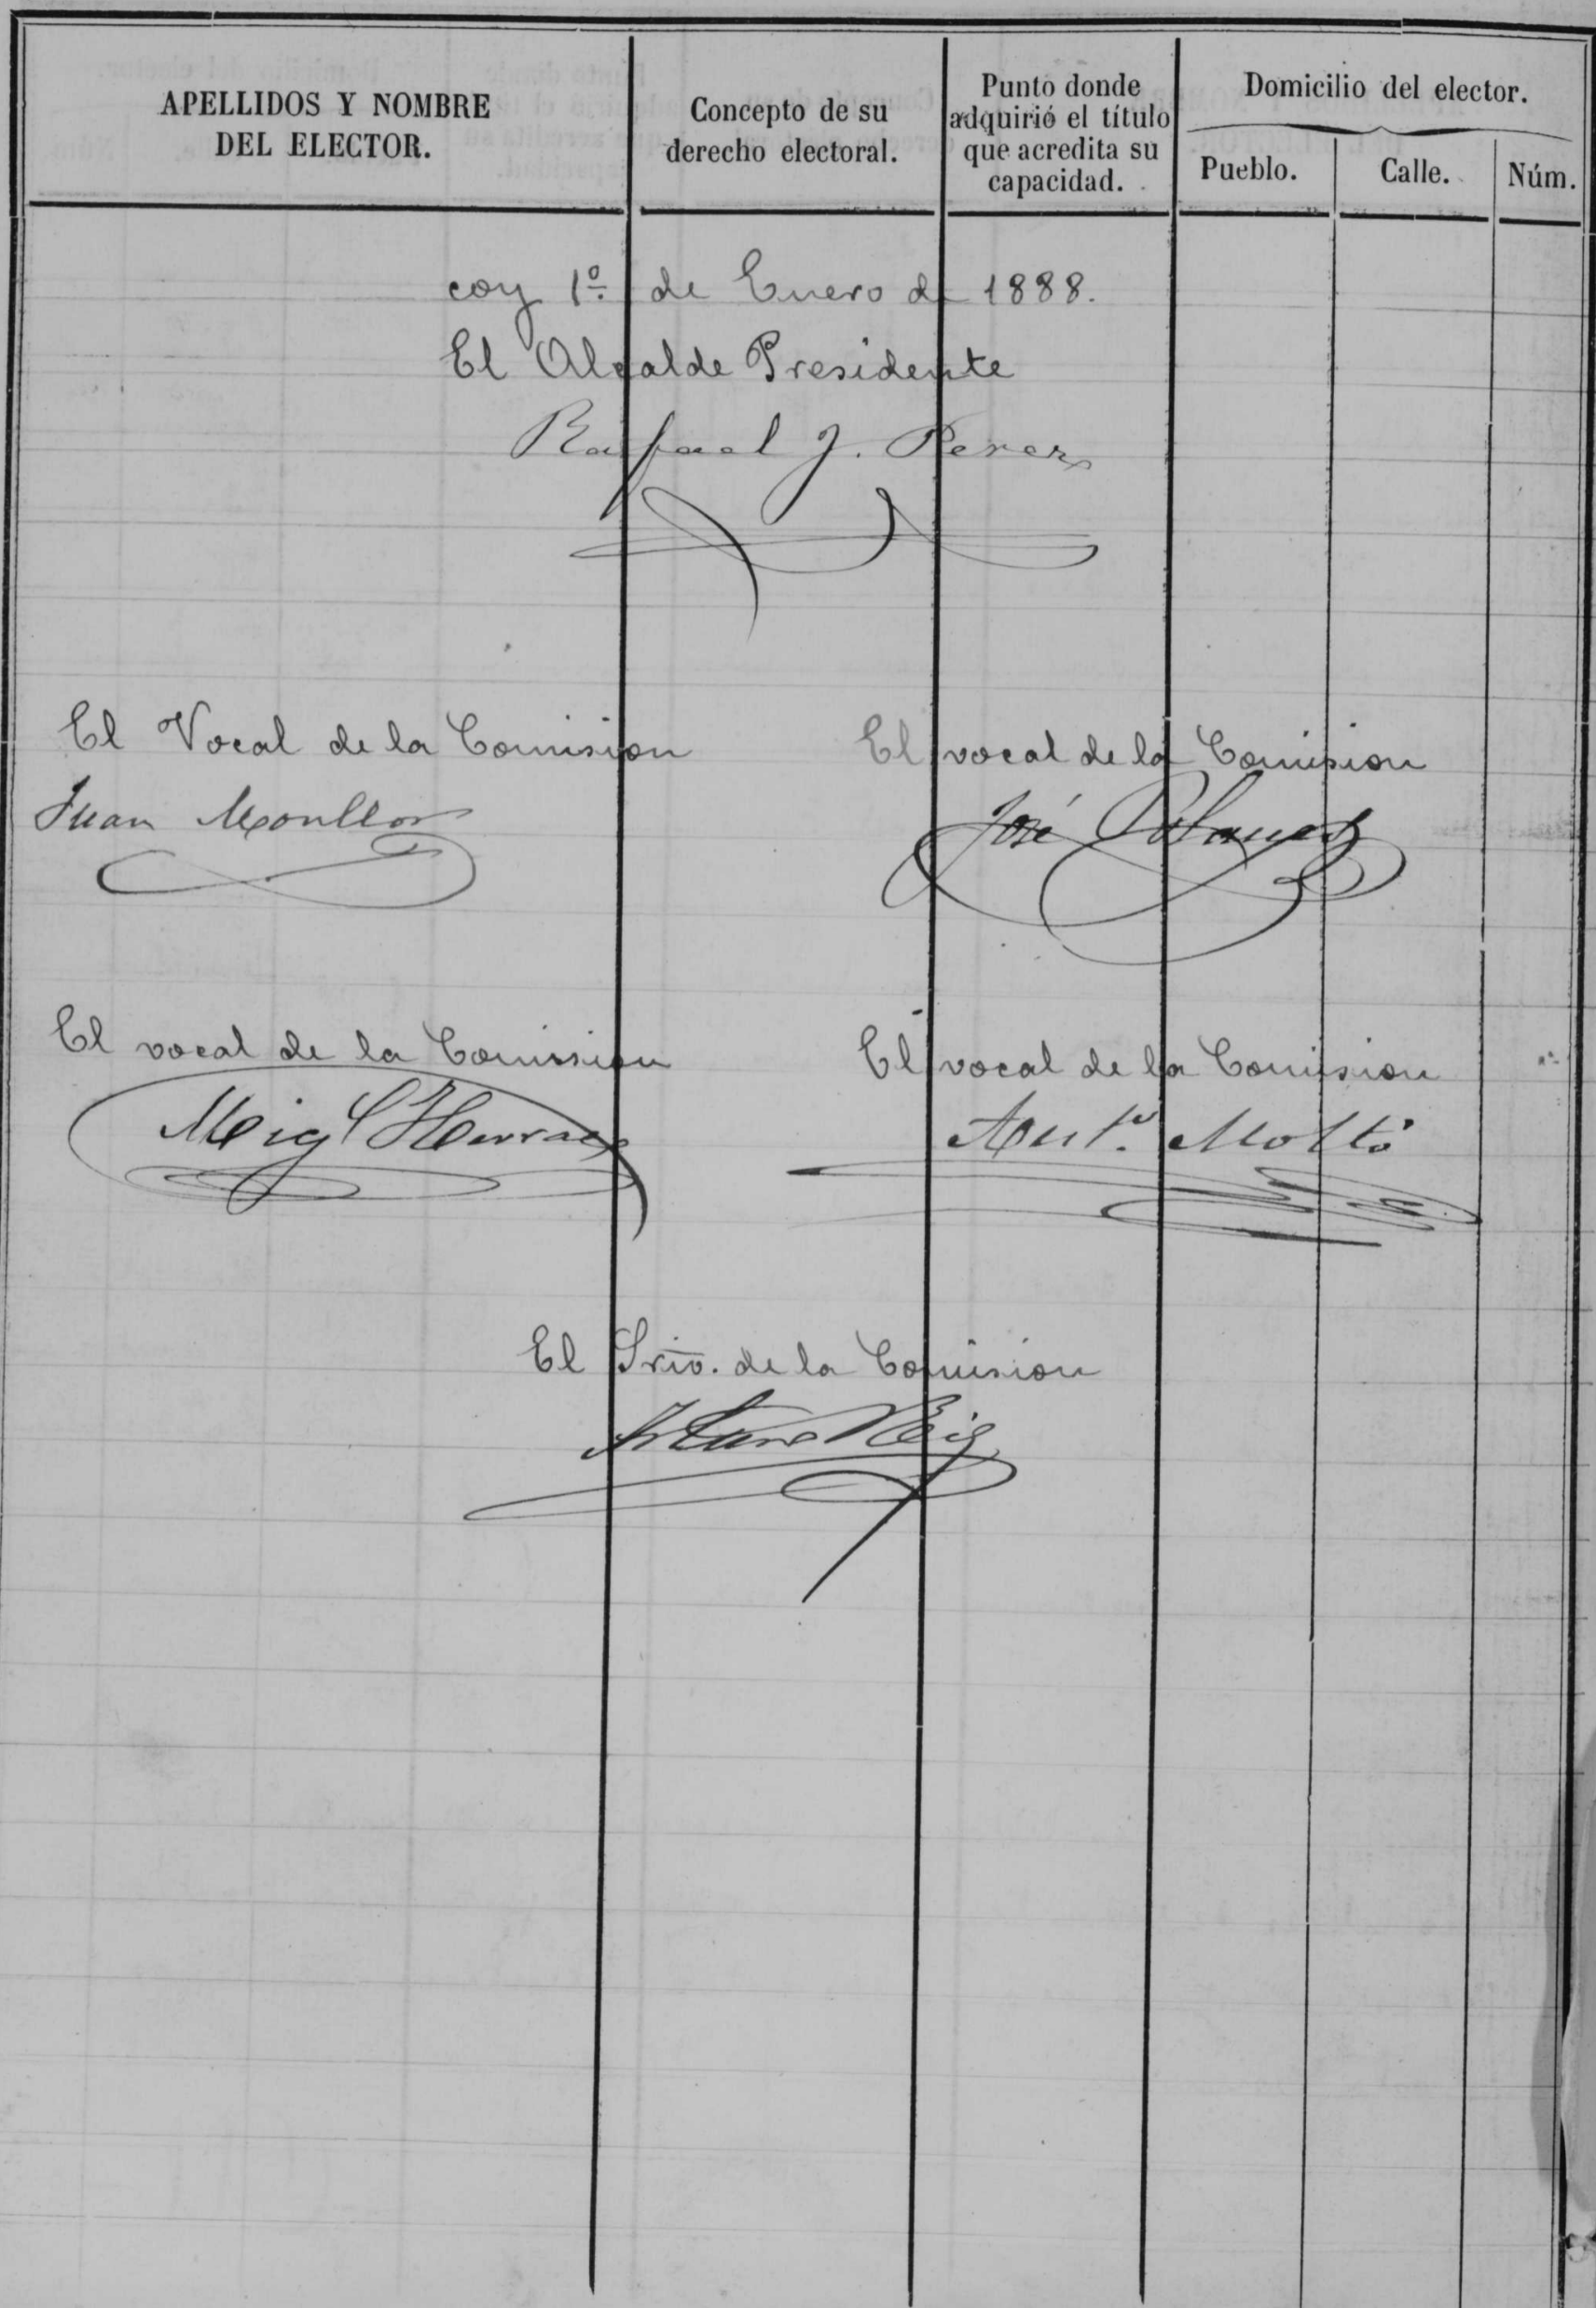 APELLIDOS Y NOMBRE
DEL ELECTOR.
Concepto de su
derecho electoral.
Punto donde
adquirió el título
que acredita su
capacidad.
Domicilio del elector.
Pueblo.
Calle.
Núm.
coy 1º de Enero de 1888.
El Alcalde Presidente
Rafael J. Perez
El Vocal de la Comision
Juan Moullor
El vocal de la Comision
José
El vocal de la Comission
Migl
El vocal de la Comision
Anto. Moltó
El Srio. de la Comision
Arturo